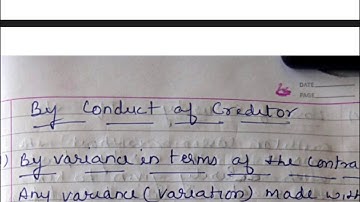 DATE
PAGE
By Conduct of Creditor
) By variance in terms of the contra
Any variance (variation) made